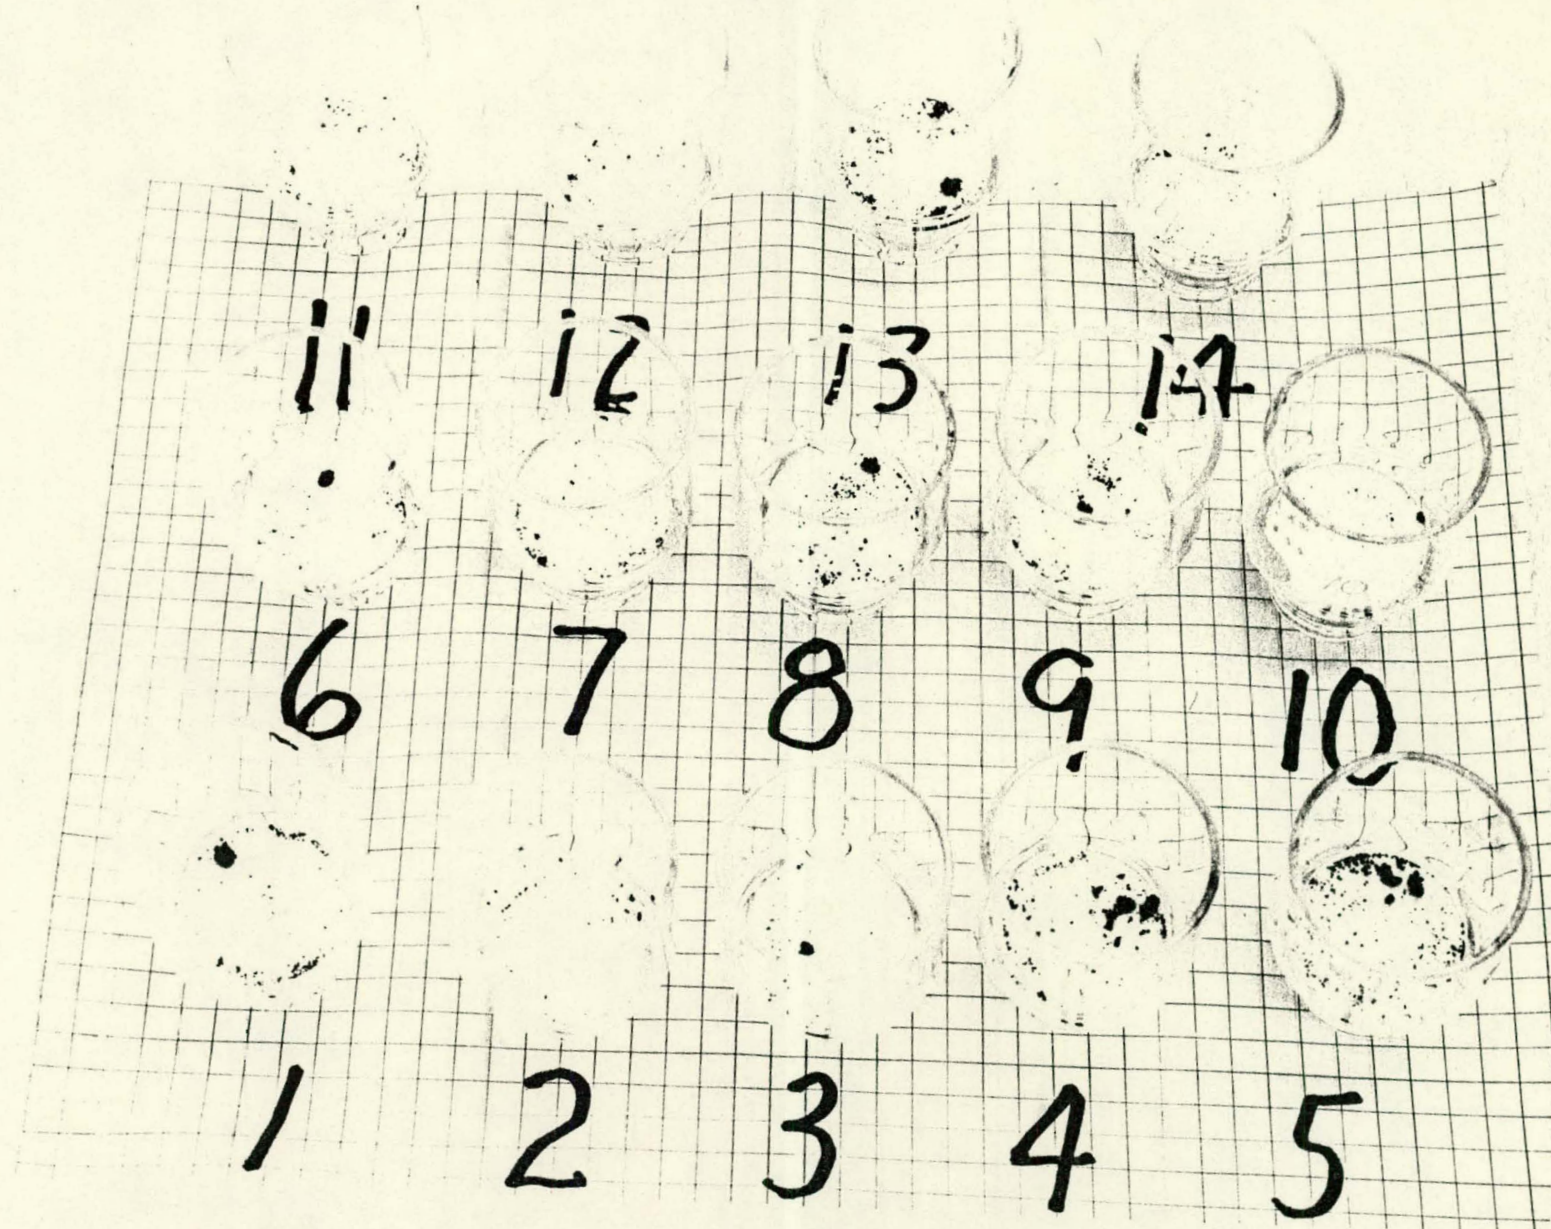 11 12 13 14
6 7 8 9 10
1 2 3 4 5